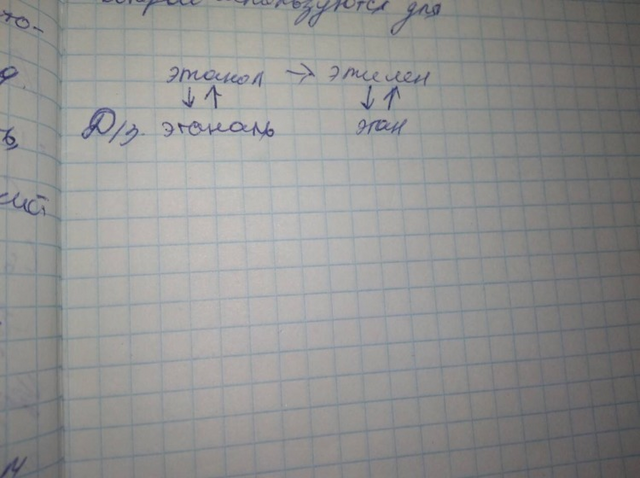 используются для
то-
д.
этанол → этилен
↓↑ ↓↑
Д/з. этаналь этан